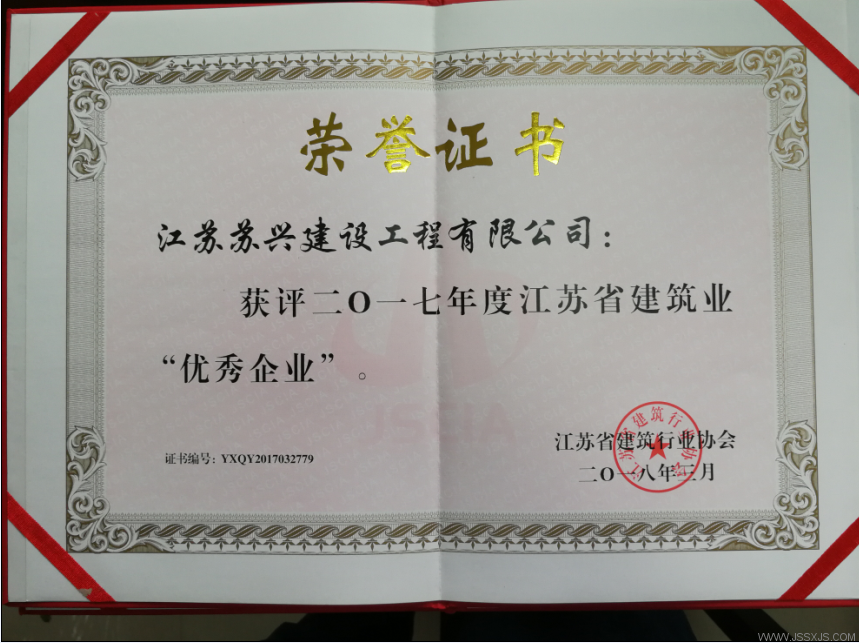 荣誉证书
江苏苏兴建设工程有限公司：
获评二O一七年度江苏省建筑业
“优秀企业”。
江苏省建筑行业协会
证书编号：YXQY2017032779
二O一八年三月
江苏省建筑行业协会
WWW.JSSXJS.COM